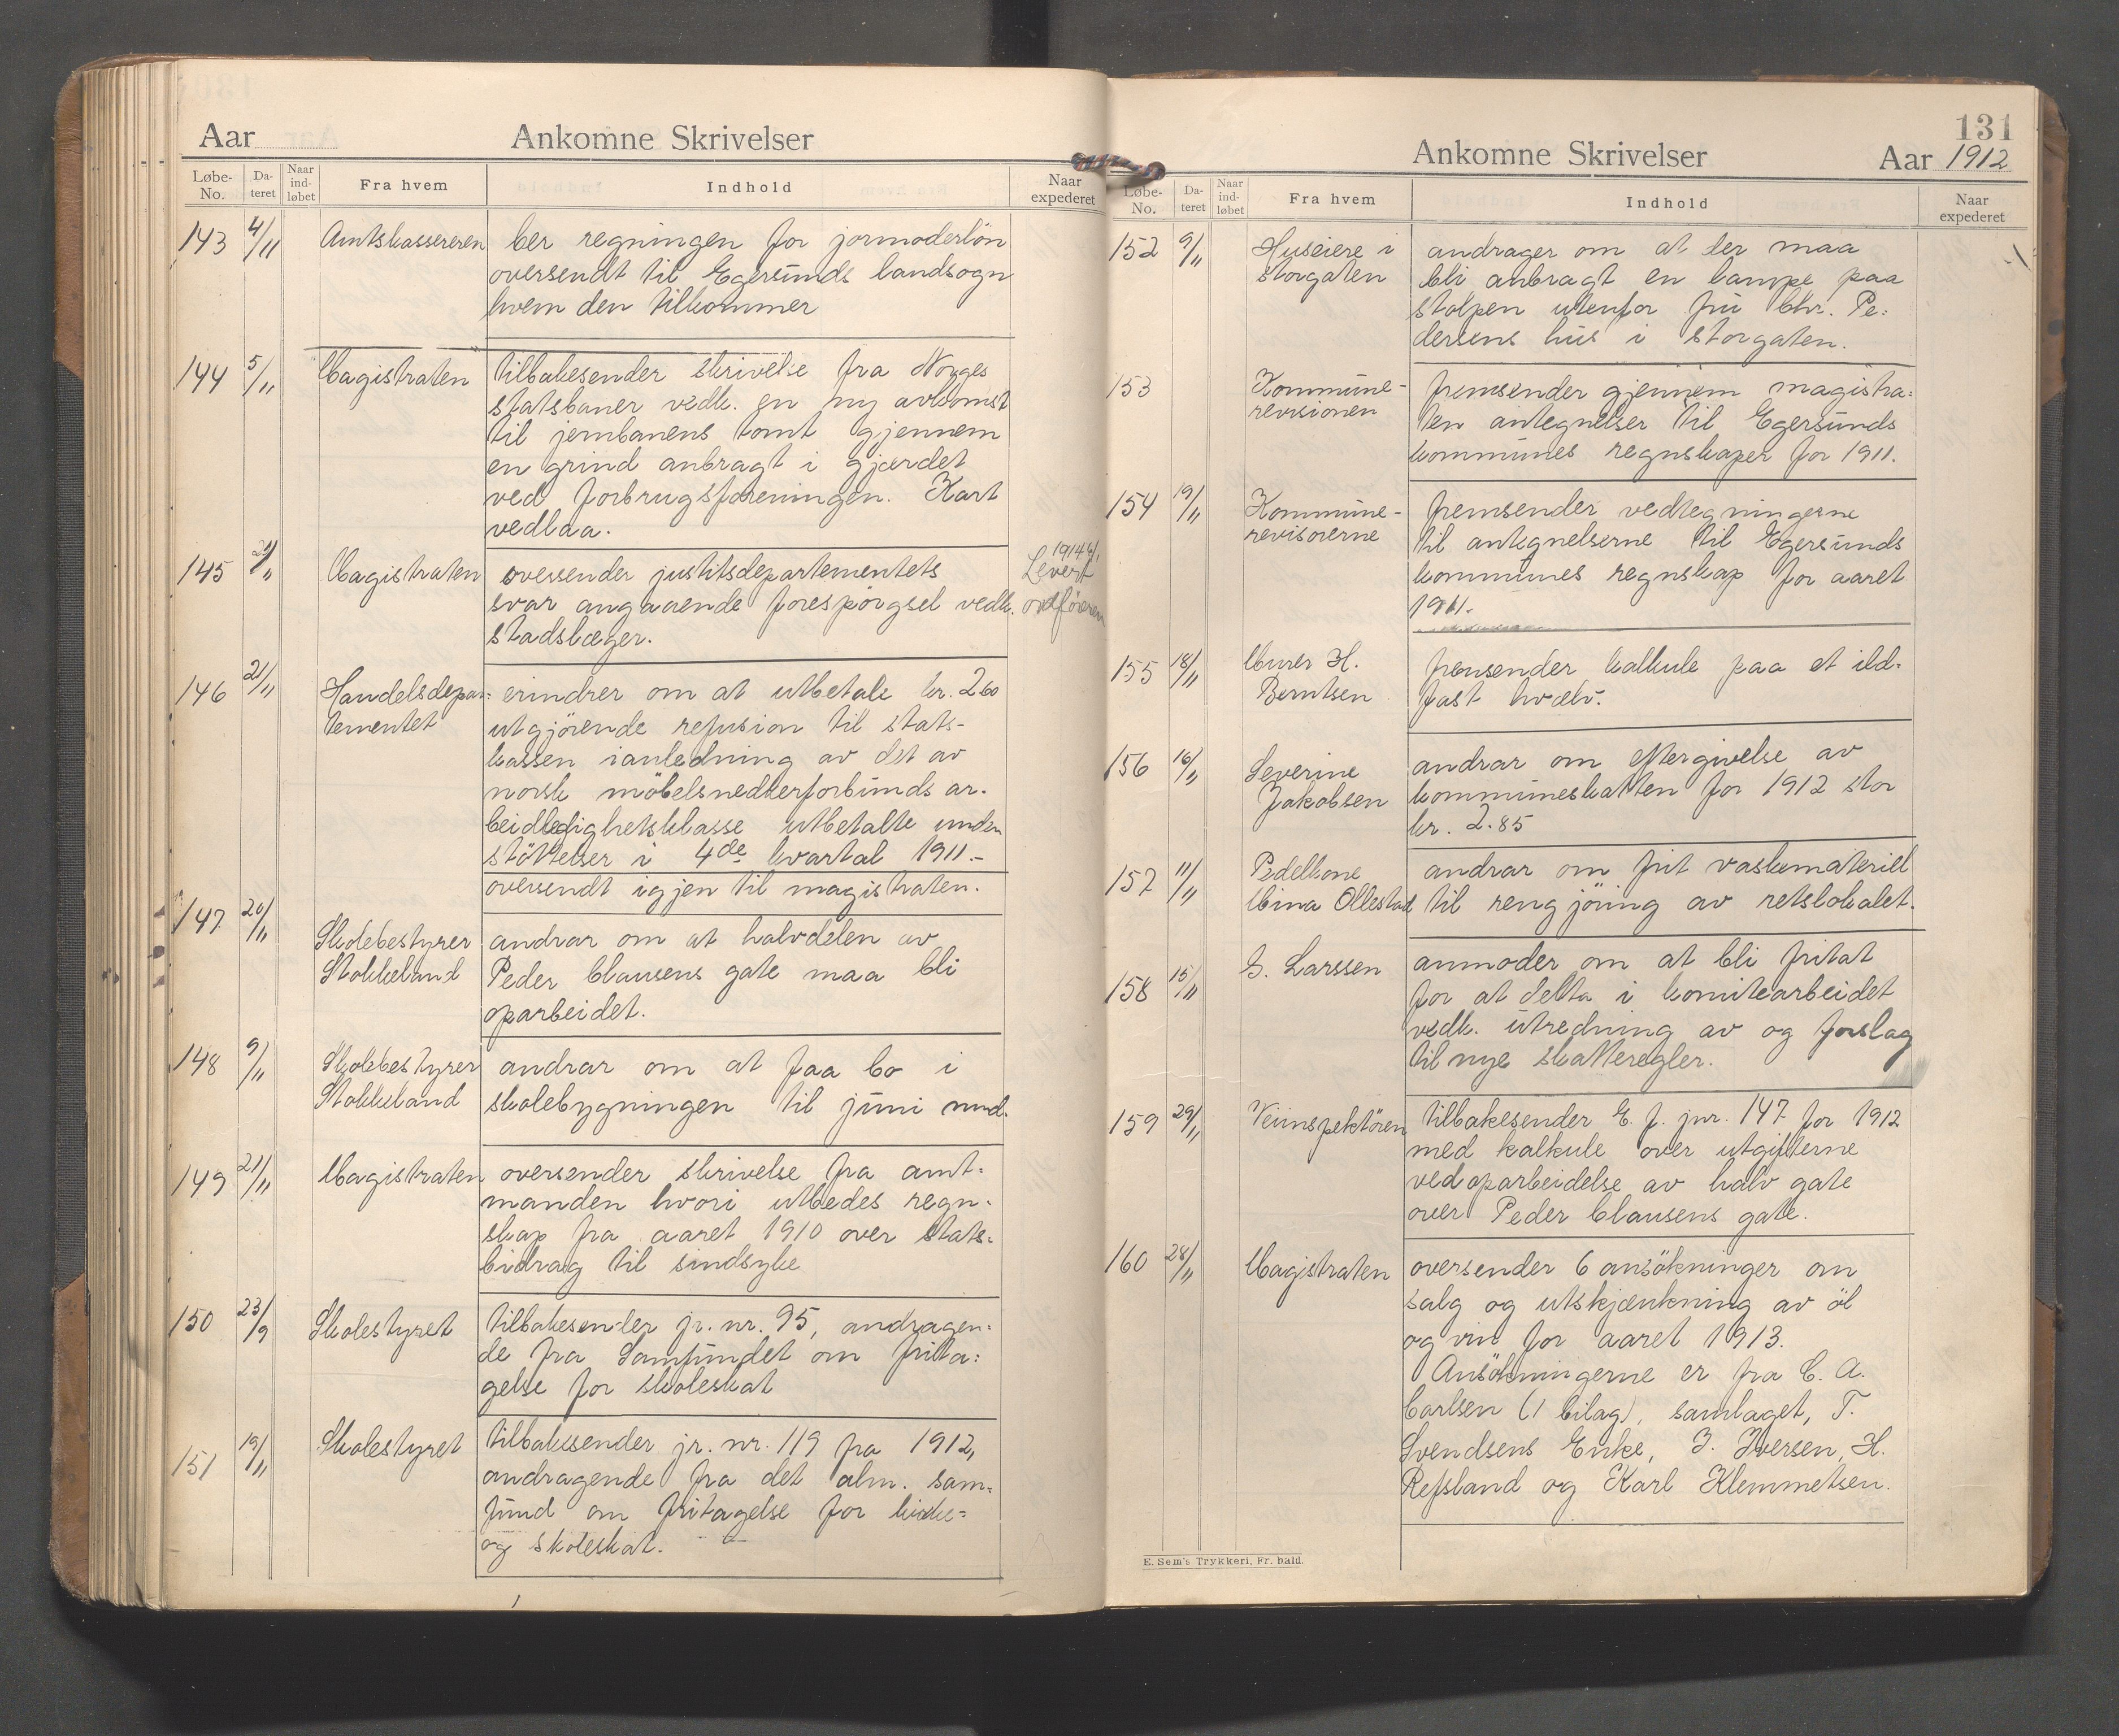 Aar
Ankomne Skrivelser
Løbe-No. Dateret Naar indløbet Fra hvem Indhold Naar expederet
143 4/11 Amtskassereren ber regningen for jormoderlön
oversendt til Egersunds landsogn
hvem den tilkommer
144 5/11 Magistraten tilbakesender skrivelse fra Norges
statsbaner vedk. en ny avkomst
til jernbanens tomt gjennem
en grind anbragt i gjærdet
ved forbrugsforeningen. Kart
vedlaa.
145 Magistraten oversender justitsdepartementets
svar angaaende forespørgsel vedk.
stadslæger.
Levert
ordföreren
146 21/11 Handelsdepar= erindrer om at utbetale kr. 2.60
tementet utgjörende refusion til stats-
kassen ianledning av det av
norsk möbelsnedkerforbunds ar-
beidledighetsklasse utbetalte under
stöttelser i 4de kvartal 1911.-
oversendt igjen til magistraten.
147. 20/11
Skolebestyrer andrar om at halvdelen av
Stokkeland Peder Clausens gate maa bli
oparbeidet.
148 9/11 Skolebestyrer andrar om at faa bo i
Stokkeland skolebygningen til juni mnd.
149 21/11 Magistraten oversender skrivelse fra amt=
manden hvori utbedes regn-
skap fra aaret 1910 over stats=
bidrag til sindsyke
150 23/9 Skolestyret tilbakesender jr. nr. 95, andragen=
de fra Samfundet om frita=
gelse for skoleskat
151 19/11 Skolestyret tilbakesender jr. nr. 119 fra 1912,
andragende fra det alm. sam=
fund om fritagelse for kirke=
og skoleskat.
131
Ankomne Skrivelser
Aar 1912
Løbe-No. Dateret Naar indløbet Fra hvem Indhold Naar expederet
152 9/11 Huseiere i andrager om at der maa
Storgaten bli anbragt en lampe paa
stolpen utenfor fru Chr. Pe=
dersens hus i Storgaten.
153 Kommune- fremsender gjennem magistra=
revisionen ten antegnelser til Egersunds
kommunes regnskaper for 1911.
154 19/11 Kommune- fremsender vedtegningerne
revisorerne til antegnelserne til Egersunds
kommunes regnskap for aaret
1911.
155 18/11 Murer H. fremsender kalkule paa et ild-
Berntsen fast hvælv.
156 16/11 Severine andrar om eftergivelse av
Jakobsen kommuneskatten for 1912 stor
kr. 2.85
157 11/11 Pedelkone andrar om frit vaskemateriell
Mina Ollestad til rengjöring av retslokalet.
158 15/11 G. Larssen anmoder om at bli fritat
for at delta i komitearbeidet
vedk. utredning av og forslag
til nye skatteregler.
159 29/11 Veiinspektören tilbakesender E. f. jnr. 147 for 1912
med kalkule over utgifterne
ved oparbeidelse av halv gate
over Peder Clausens gate.
160 28/11 Magistraten oversender 6 ansökninger om
salg og utskjænkning av öl
og vin for aaret 1913.
Ansökningerne er fra C. A.
Carlsen (1 bilag), samlaget, T.
Svendsens Enke, J. Iversen, H.
Refsland og Karl Klemmetsen.
E. Sem's Trykkeri, Fr. hald.